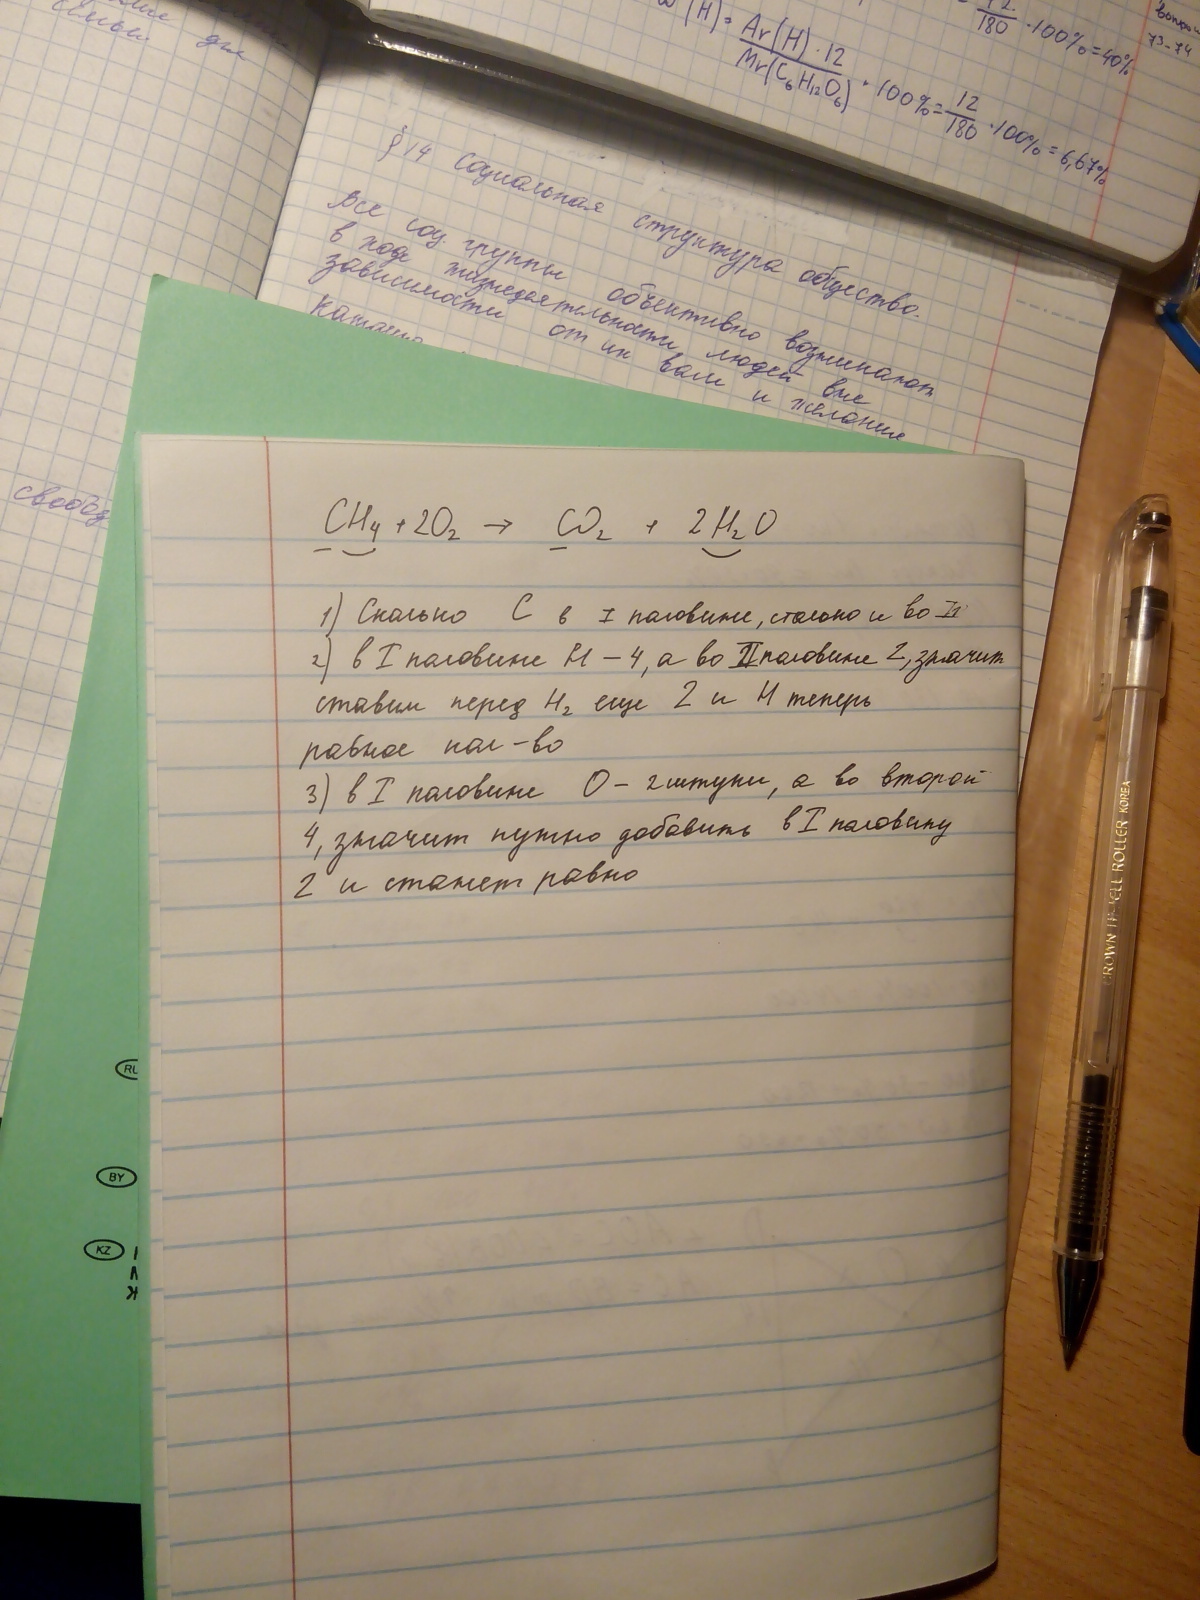 ω(H) = Ar(H) · 12 / Mr(C₆H₁₂O₆) · 100% = 12/180 · 100% = 6,67%
180 · 100% = 40%
73-74
для
§ 14 Социальная структура общества.
Все соц. группы объективно возникают
в ходе жизнедеятельности людей вне
зависимости от их воли и желание
свобод
CH₄ + 2O₂ → CO₂ + 2H₂O
1) Сколько C в I половине, столько и во II
2) в I половине H – 4, а во II половине 2, значит
ставим перед H₂ еще 2 и H теперь
равное кол-во
3) в I половине O – 2 штуки, а во второй
4, значит нужно добавить в I половину
2 и станет равно
RU
BY
KZ
CROWN HI-JELL ROLLER KOREA